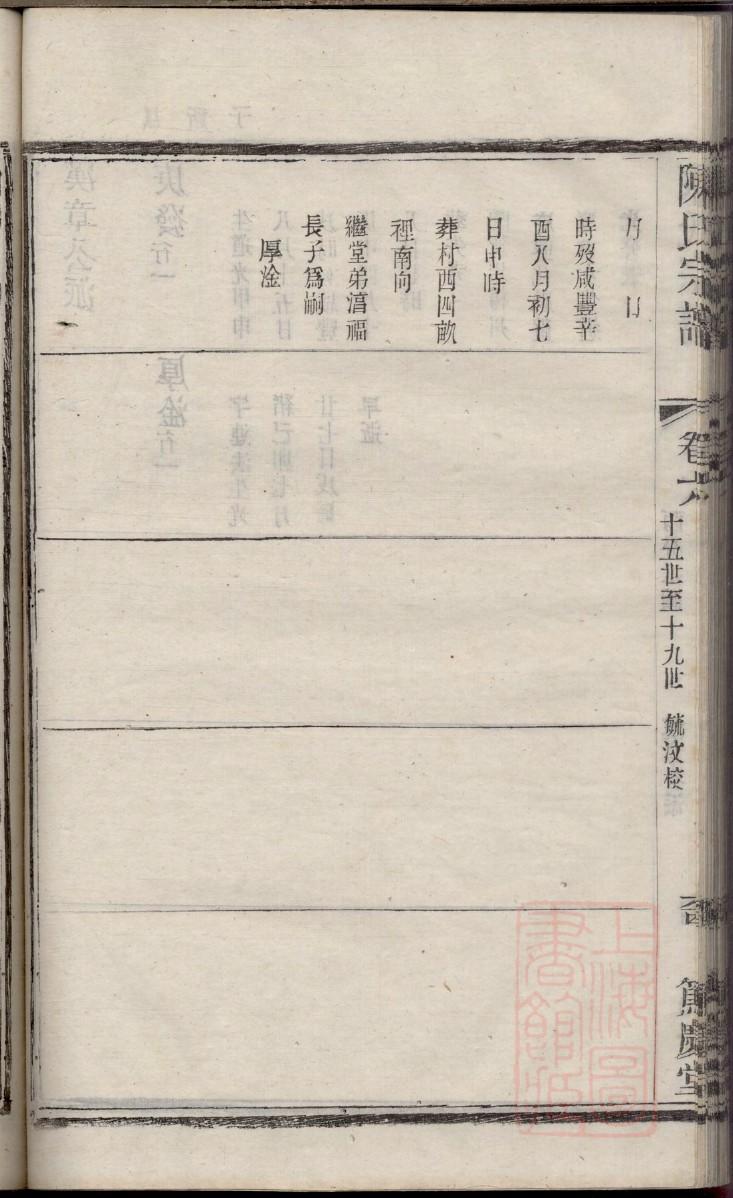 陳氏宗譜
卷六
十五世至十九世
毓汶校
篤慶堂
月　日
時歿咸豐辛
酉八月初七
日申時
葬村西四畝
裡南向
繼堂弟湻福
長子爲嗣
厚淦
上海圖
書館藏